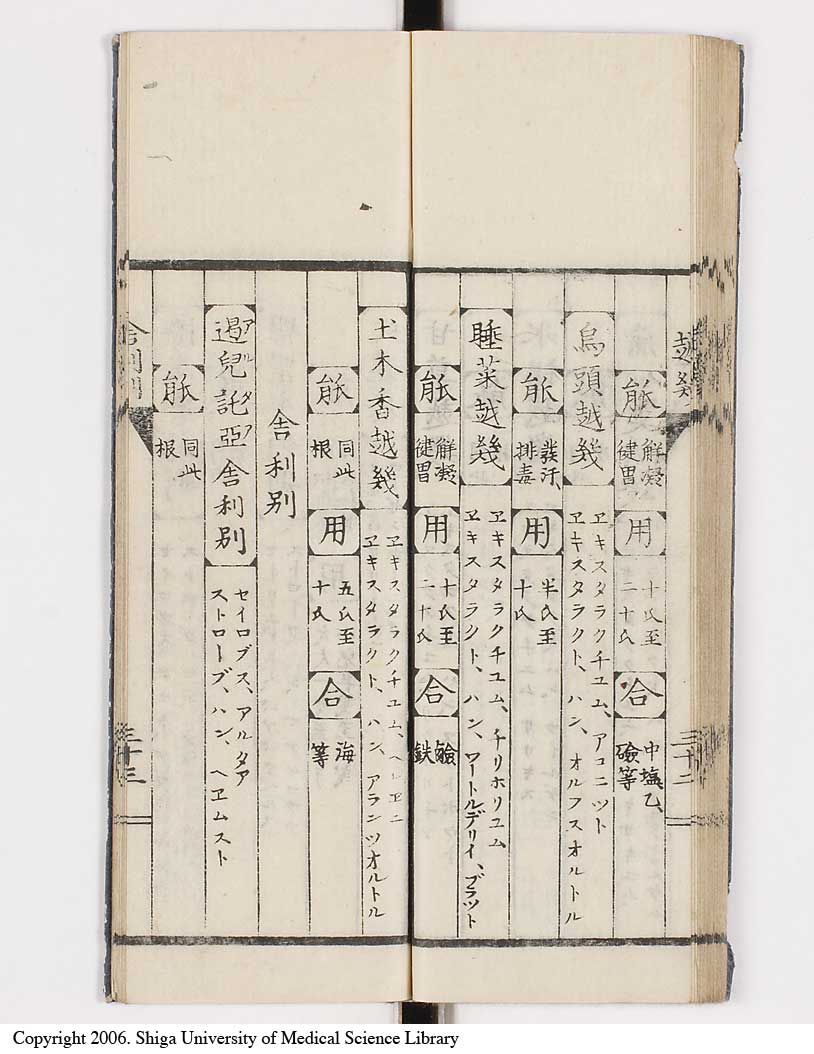 越幾
三十二
能
解凝
健胃
用
十氏至
二十氏
合
中塩乙、
礆等
烏頭越幾
ヱキスタラクチユム、アコニツト
ヱキスタラクト、ハン、オルフスオルトル
能
発汗、
排毒
用
半氏至
十氏
睡菜越幾
ヱキスタラクチユム、チリホリユム
ヱキスタラクト、ハン、ワートルデリイ、ブラツト
能
解凝
健胃
用
十氏至
二十氏
合
鹼
鉄
土木香越幾
ヱキスタラクチユム、ヘレヱニ
ヱキスタラクト、ハン、アランツオルトル
能
同此
根
用
五氏至
十氏
合
海
等
舎利別
遏兒託亞舎利別
アルタア
セイロブス、アルタア
ストローブ、ハン、ヘヱムスト
能
同此
根
舎利別
三十三
Copyright 2006. Shiga University of Medical Science Library